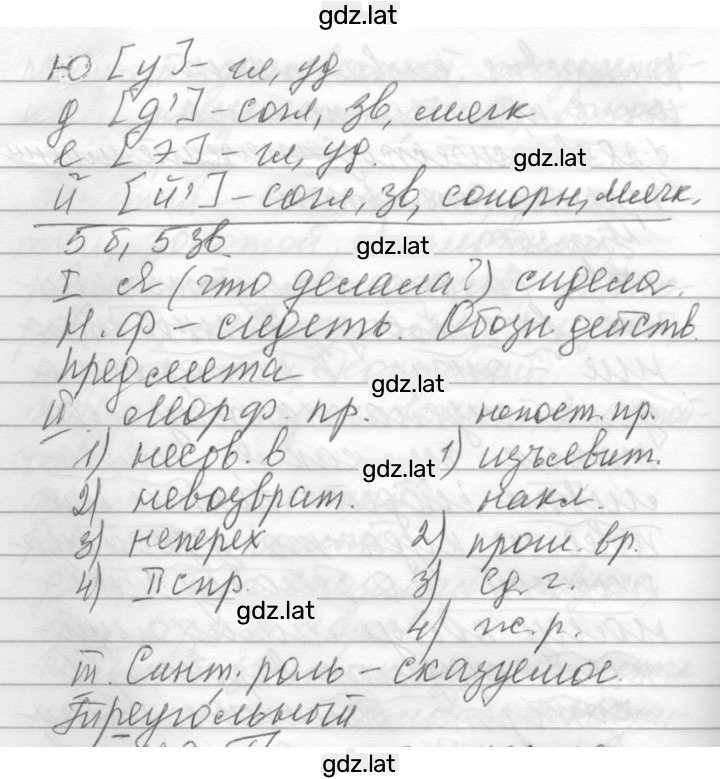 gdz.lat
ю [у] - гл, уд
д [д'] - согл, зв, мягк
е [э] - гл, уд.
gdz.lat
й [й'] - согл, зв, сонорн, мягк.
5 б, 5 зв
gdz.lat
I Я (что делала?) сидела.
Н.ф - сидеть. Обозн. действ.
предмета
gdz.lat
II. Морф. пр. непост. пр.
1) несов. в 1) изъявит.
gdz.lat
2) невозврат. накл.
3) неперех 2) прош. вр.
4) II спр. 3) ед. ч.
gdz.lat
4) ж.р.
III. Синт. роль - сказуемое.
Треуго́льный
gdz.lat